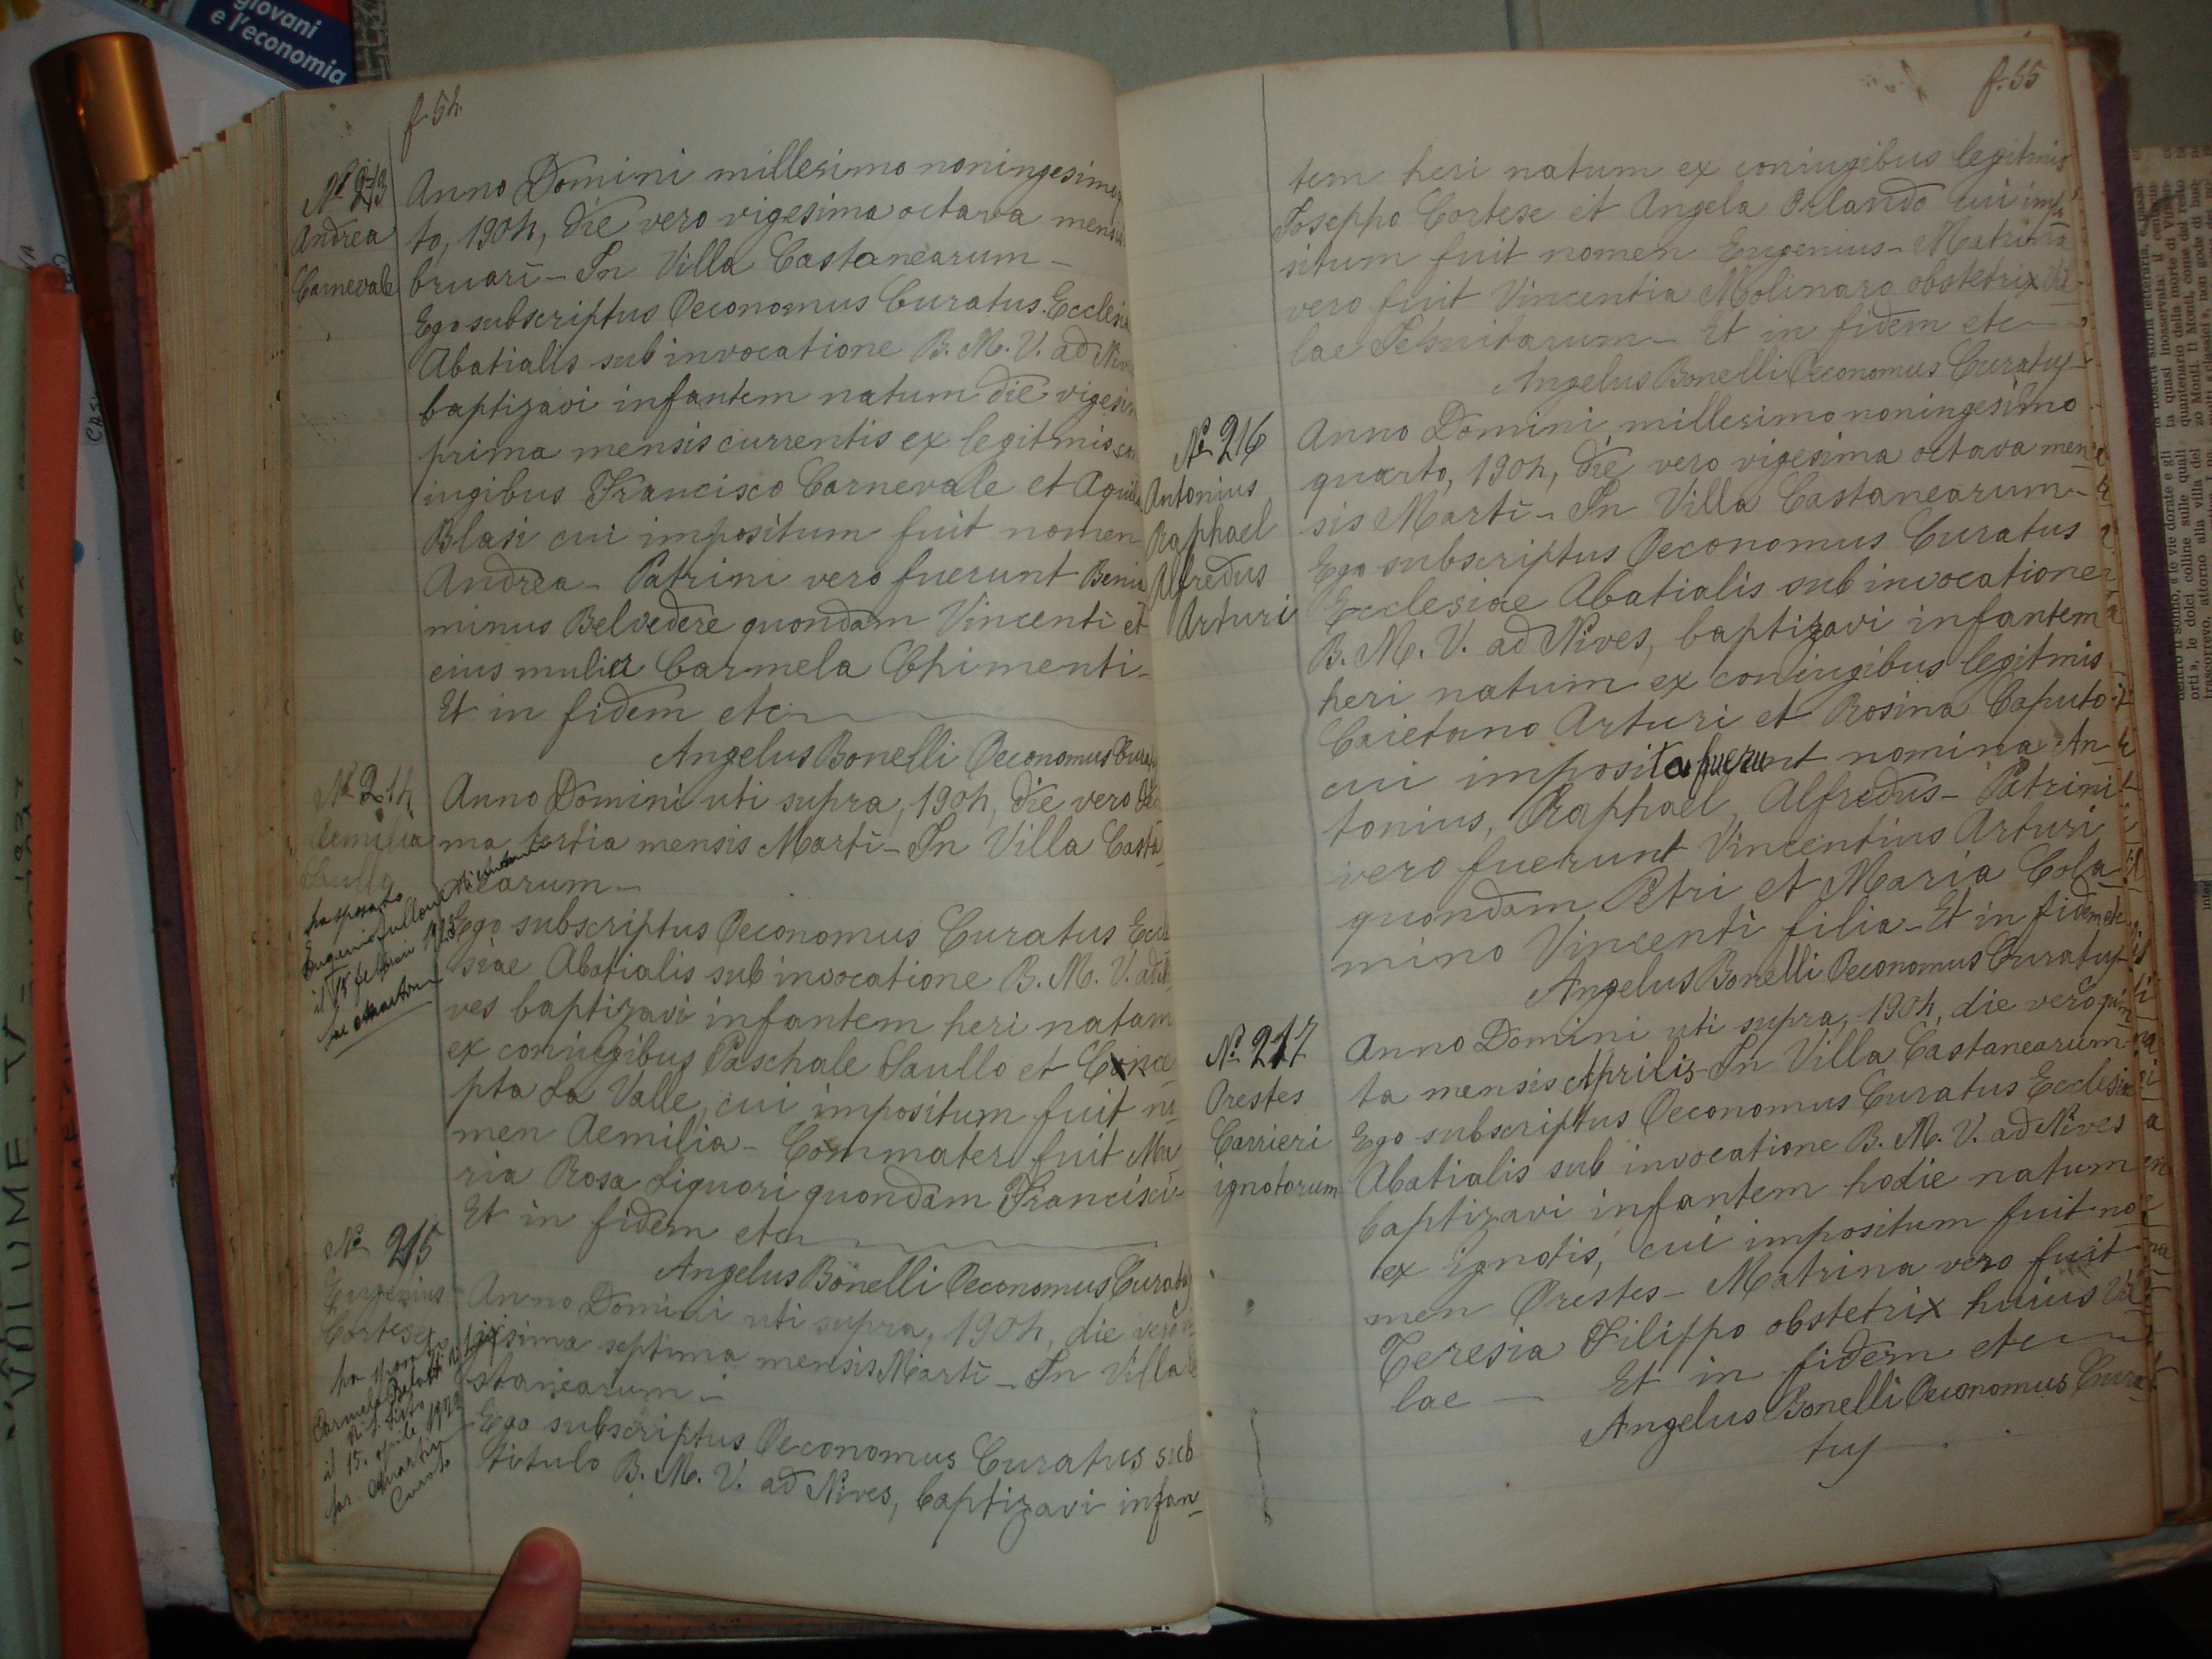 giovani
e l'economia
f. 54.
Nº 213
Andrea
Carnevale
Anno Domini millesimo noningesimo
to, 1904, die vero vigesima octava mensis
bruarī – In Villa Castanearum –
Ego subscriptus Oeconomus Curatus Ecclesia
Abatialis sub invocatione B. M. V. ad Niv
baptizavi infantem natum die vigesi
prima mensis currentis ex legitmis co
iugibus Francisco Carnevale et Aquila
Blasi cui impositum fuit nomen
Andrea – Patrini vero fuerunt Benia
minus Belvedere quondam Vincentī et
eius mulier Carmela Chimenti –
Et in fidem etc
Angelus Bonelli Oeconomus Curat
Nº 214
Aemilia
Saullo
ha sposato
Eugenio
il 15 febbraio
Anno Domini uti supra, 1904, die vero deci
ma tertia mensis Martī – In Villa Casta
nearum –
Ego subscriptus Oeconomus Curatus Eccle
siae Abatialis sub invocatione B. M. V. ad Ni
ves baptizavi infantem heri natam
ex coniugibus Paschale Saullo et Conce
pta La Valle, cui impositum fuit no
men Aemilia – Commater fuit Ma
ria Rosa Liguori quondam Francisci –
Et in fidem etc
Angelus Bonelli Oeconomus Curatus
Nº 215
Eugenius
Cortese
ha sposato
Carmela
il 15. aprile
Curato
Anno Domini uti supra, 1904, die vero vi
gesima septima mensis Martī – In Villa Ca
stanearum –
Ego subscriptus Oeconomus Curatus sub
titulo B. M. V. ad Nives, baptizavi infan–
f. 55
tem heri natum ex coniugibus legitmis
Joseppo Cortese et Angela Orlando cui impo
situm fuit nomen Eugenius – Matrina
vero fuit Vincentia Molinaro obstetrix Vil–
lae Jesuitarum – Et in fidem etc
Angelus Bonelli Oeconomus Curatus
Nº 216
Antonius
Raphael
Alfredus
Arturi
Anno Domini millesimo noningesimo
quarto, 1904, die vero vigesima octava men
sis Martī – In Villa Castanearum –
Ego subscriptus Oeconomus Curatus
Ecclesiae Abatialis sub invocatione
B. M. V. ad Nives, baptizavi infantem
heri natum ex coniugibus legitmis
Caietano Arturi et Rosina Caputo
cui imposita fuerunt nomina An–
tonius, Raphael, Alfredus – Patrini
vero fuerunt Vincentius Arturi
quondam Petri et Maria Cola–
mino Vincentī filia – Et in fidem etc
Angelus Bonelli Oeconomus Curatus
Nº 217
Orestes
Carrieri
ignotorum
Anno Domini uti supra, 1904, die vero quin–
ta mensis Aprilis – In Villa Castanearum –
Ego subscriptus Oeconomus Curatus Ecclesiae
Abatialis sub invocatione B. M. V. ad Nives
baptizavi infantem hodie natum
ex ignotis, cui impositum fuit no–
men Orestes – Matrina vero fuit
Teresia Filippo obstetrix huius Vil–
lae – Et in fidem etc
Angelus Bonelli Oeconomus Cura–
tus